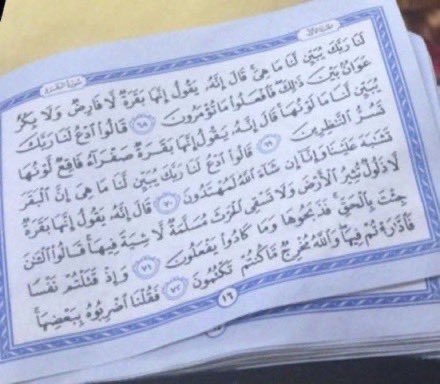 الجزء الأول سورة البقرة
لَنَا رَبَّكَ يُبَيِّن لَّنَا مَا هِىَ قَالَ إِنَّهُۥ يَقُولُ إِنَّهَا بَقَرَةٌ لَّا فَارِضٌ وَلَا بِكْرٌ
عَوَانٌۢ بَيْنَ ذَٰلِكَ فَٱفْعَلُوا۟ مَا تُؤْمَرُونَ ٦٨ قَالُوا۟ ٱدْعُ لَنَا رَبَّكَ
يُبَيِّن لَّنَا مَا لَوْنُهَا قَالَ إِنَّهُۥ يَقُولُ إِنَّهَا بَقَرَةٌ صَفْرَآءُ فَاقِعٌ لَّوْنُهَا
تَسُرُّ ٱلنَّٰظِرِينَ ٦٩ قَالُوا۟ ٱدْعُ لَنَا رَبَّكَ يُبَيِّن لَّنَا مَا هِىَ إِنَّ ٱلْبَقَرَ
تَشَٰبَهَ عَلَيْنَا وَإِنَّآ إِن شَآءَ ٱللَّهُ لَمُهْتَدُونَ ٧٠ قَالَ إِنَّهُۥ يَقُولُ إِنَّهَا بَقَرَةٌ
لَّا ذَلُولٌ تُثِيرُ ٱلْأَرْضَ وَلَا تَسْقِى ٱلْحَرْثَ مُسَلَّمَةٌ لَّا شِيَةَ فِيهَا قَالُوا۟ ٱلْـَٰٔنَ
جِئْتَ بِٱلْحَقِّ فَذَبَحُوهَا وَمَا كَادُوا۟ يَفْعَلُونَ ٧١ وَإِذْ قَتَلْتُمْ نَفْسًا
فَٱدَّٰرَْٰٔتُمْ فِيهَا وَٱللَّهُ مُخْرِجٌ مَّا كُنتُمْ تَكْتُمُونَ ٧٢ فَقُلْنَا ٱضْرِبُوهُ بِبَعْضِهَا
١٦